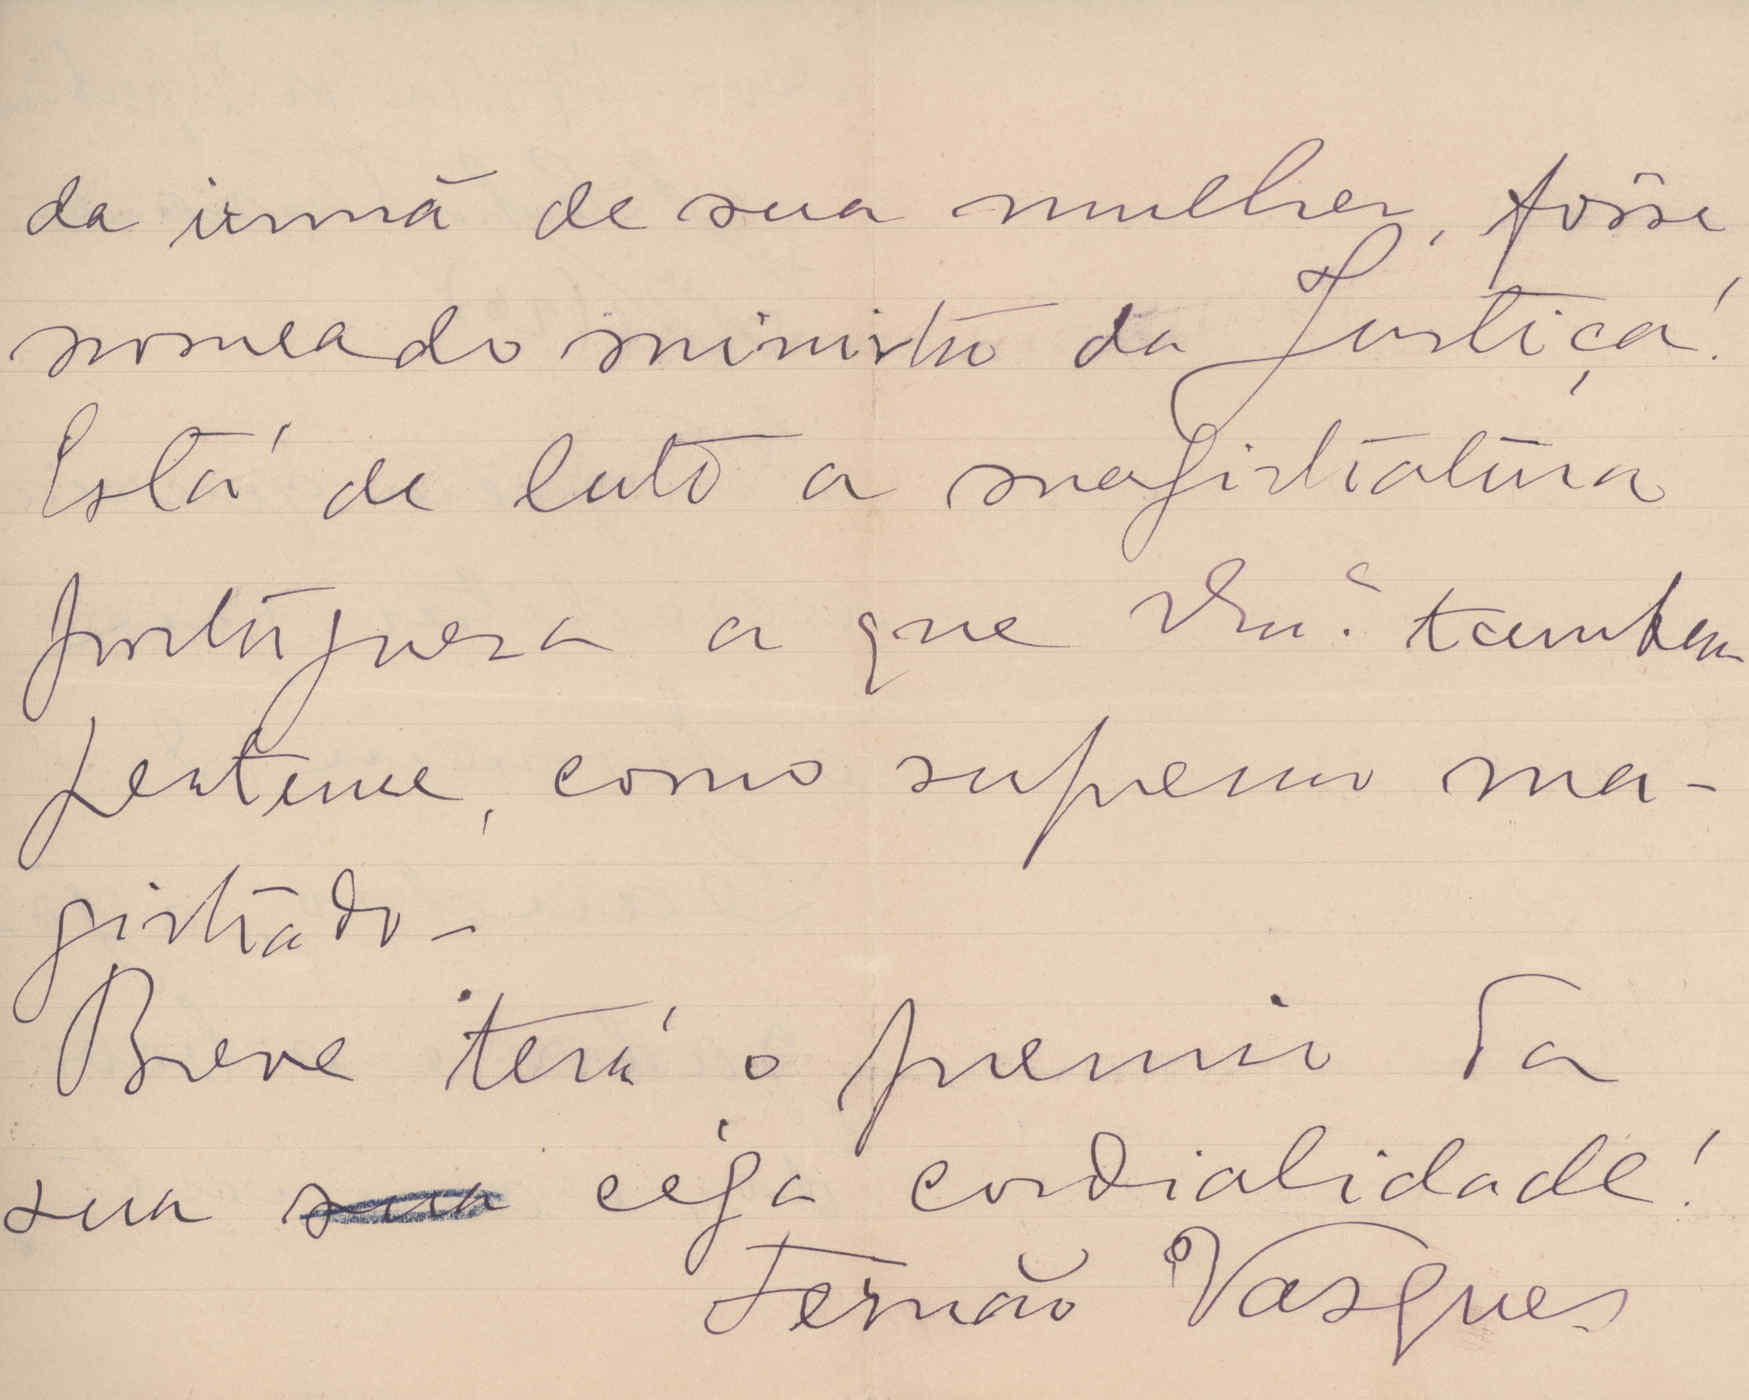 da irmã de sua mulher, fôsse
nomeado ministro da Justiça!
Está de luto a magistratura
portuguesa a que tambem
pertence, como supremo ma-
gistrado -
Breve terá o premio da
sua sua cega cordialidade!
Fernão Vasques